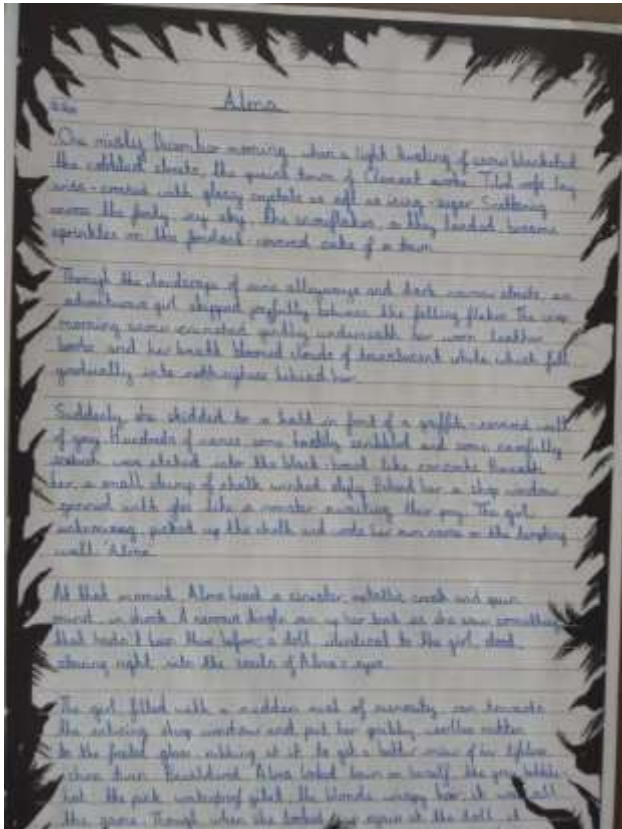 Alma
One misty December morning, when a light dusting of snow blanketed
the cobbled streets, the quiet town of Clement awoke. Tiled roofs lay
criss-crossed with glassy crystals as soft as icing-sugar
across the sky. The snowflakes, as they landed, became
sprinkles on the fondant covered cake of a town.
Through the landscape of alleyways and dark narrow streets, an
adventurous girl skipped joyfully between the falling flakes. The crisp
morning snow crunched softly underneath her worn leather
boots and her breath bloomed clouds of translucent white which fell
gradually into nothingness behind her.
Suddenly she skidded to a halt in front of a graffiti-covered wall
of grey. Hundreds of names some hastily scribbled and some carefully
were etched into the black-board like concrete. Beneath
her, a small stump of chalk winked slyly. Behind her a shop window
with like a monster awaiting their prey. The girl,
picked up the chalk and wrote her own name on the tempting
wall 'Alma
At that moment, Alma heard a sinister, metallic creak and spun
round in shock. A nervous tingle ran up her back as she saw something
that hadn't been there before; a doll, identical to the girl, stood
staring right into the souls of Alma's eyes.
The girl, filled with a sudden of curiosity, ran towards
the enticing shop window and put her woollen mitten
to the frosted glass rubbing at it to get a better view of her lifeless
twin. Bewildered, Alma looked down on herself, the grey bobble-
hat, the pink waterproof gilet, the blonde wispy hair, it was all
the same. Though when she looked up again at the doll, it